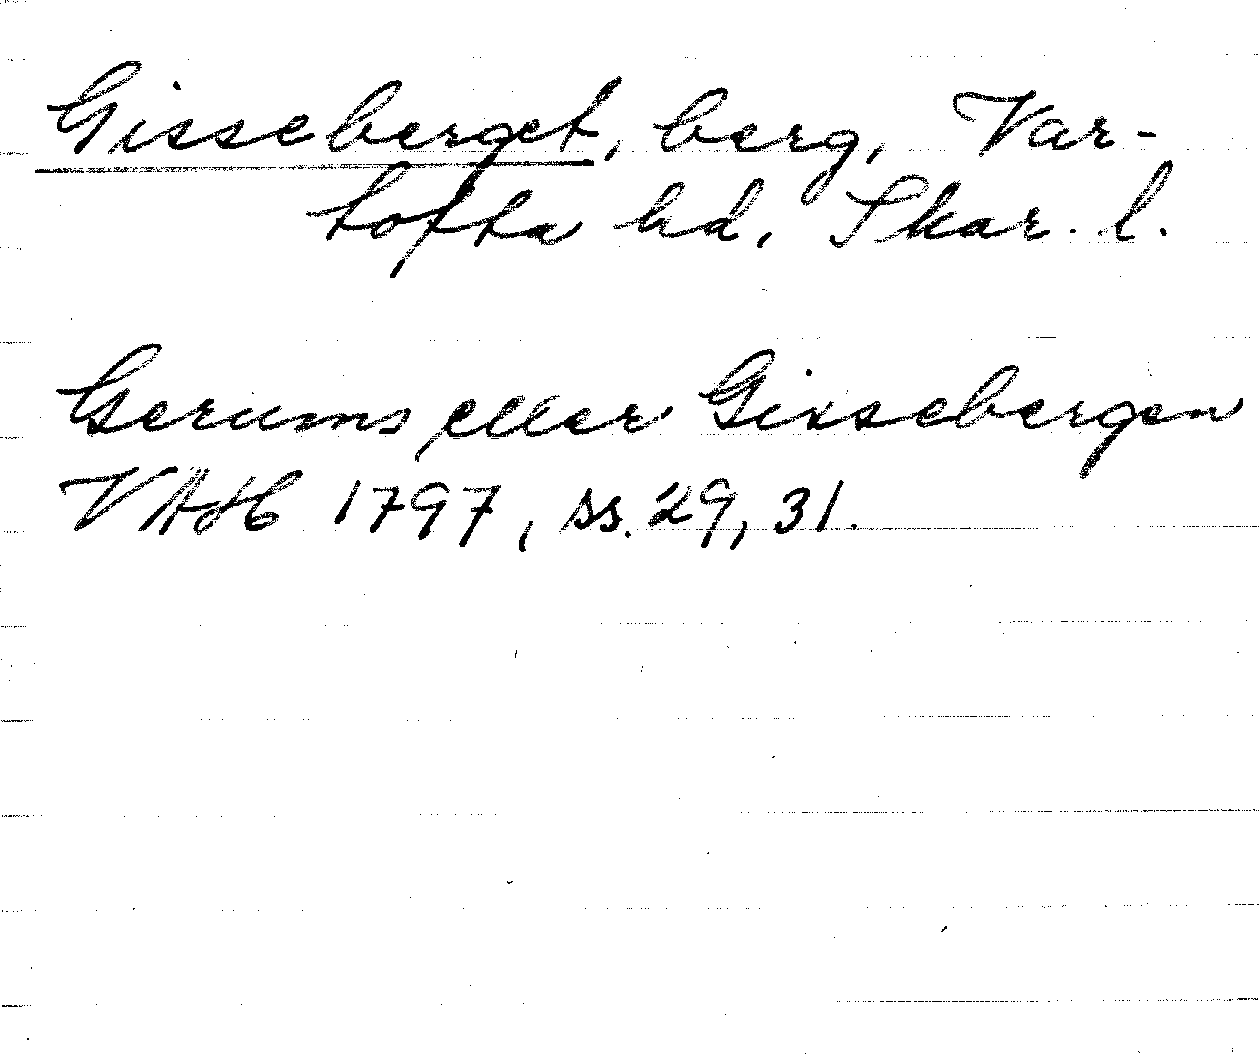 Gisseberget, berg, Var-
tofta hd, Skar. l.
Gerums eller Gissebergen
VAH 1797, ss. 29, 31.